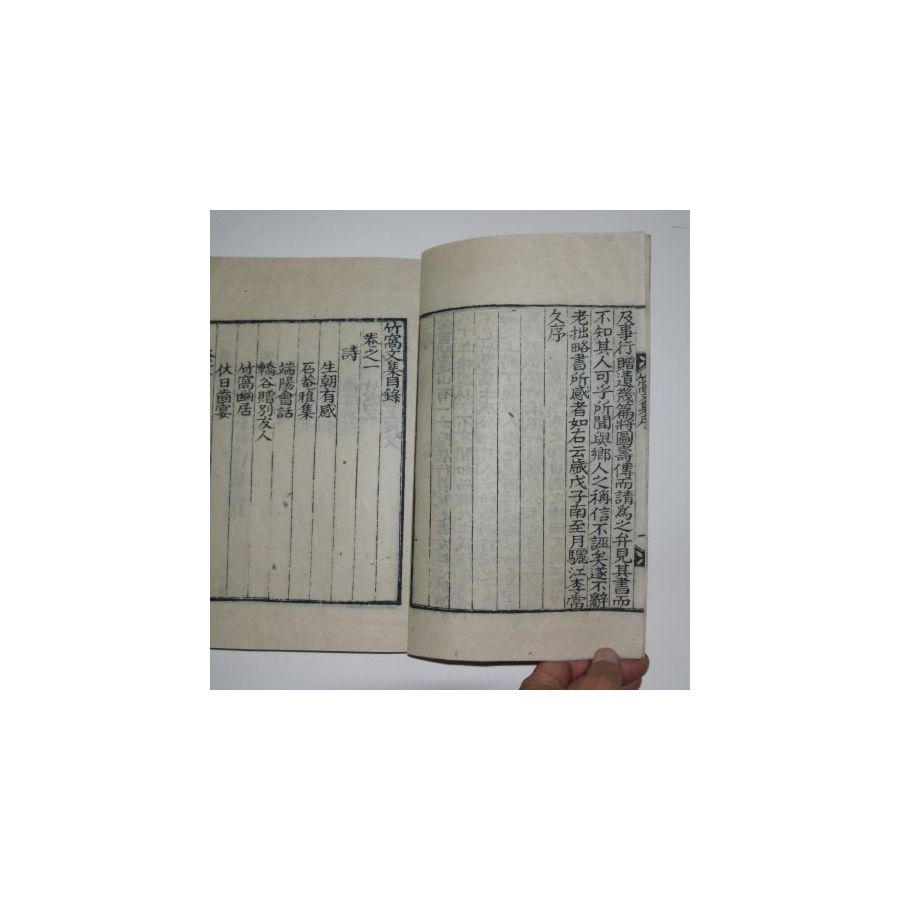 及事行贈遺幾篇將圖壽傳而請爲之弁見其書而
不知其人可乎所聞與鄕人之稱信不誣矣遂不辭
老拙略書所感者如右云歲戊子南至月驪江李當
久序
竹窩文集序
竹窩文集目錄
卷之一
詩
生朝有感
石菴雅集
端陽會話
轎谷贈別友人
竹窩幽居
伏日齒宴